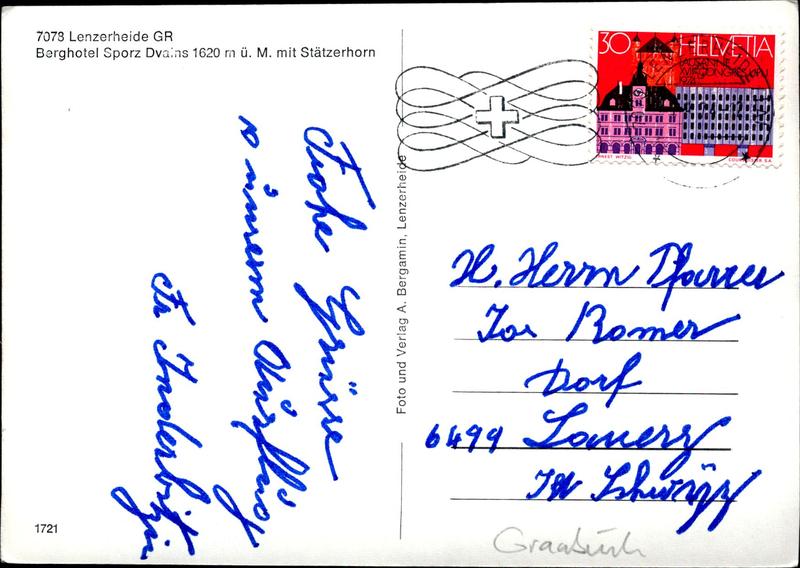 7078 Lenzerheide GR
Berghotel Sporz Dvains 1620 m ü. M. mit Stätzerhorn
Frohe Grüsse
innern Ausflug
Fr Inderbitzin
1721
Foto und Verlag A. Bergamin, Lenzerheide
30 HELVETIA
LAUSANNE
XVII CONGRÈS UPU
1974
ERNEST WITZIG
COURVOISIER S.A.
H. Herrn Pfarrer
Jos Romer
Dorf
6499 Lauerz
Kt Schwyz